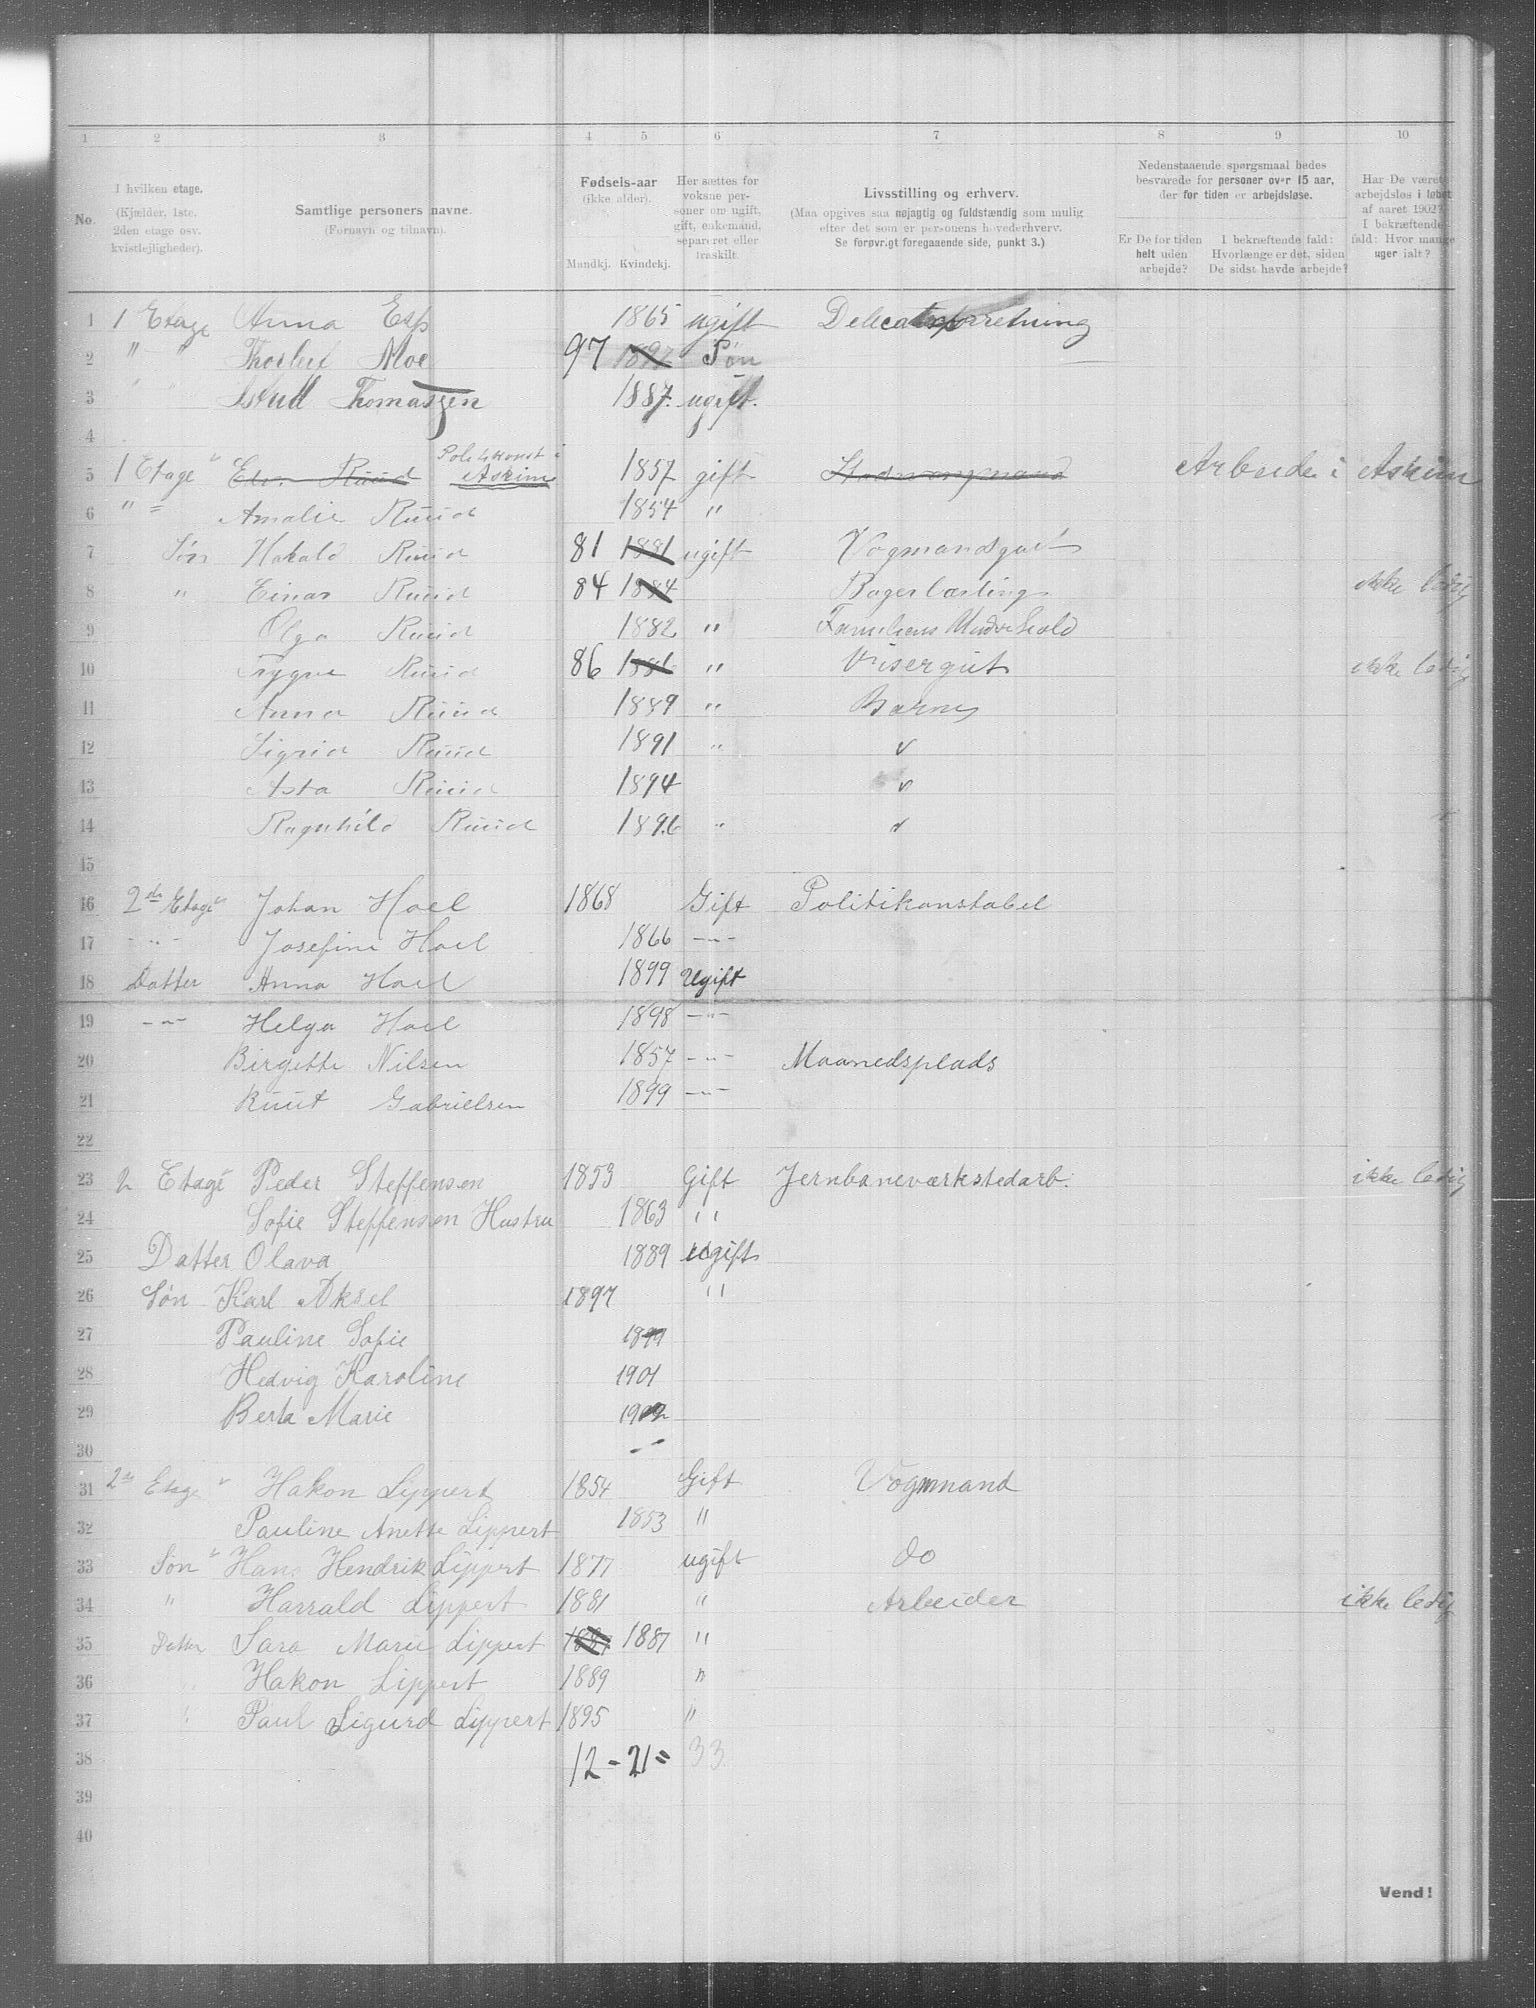 1 2 3 4 5 6 7 8 9 10
No.
I hvilken etage.
(Kjælder, 1ste,
2den etage osv.
kvistlejligheder).
Samtlige personers navne.
(Fornavn og tilnavn).
Fødsels-aar
(ikke alder).
Mandkj. Kvindekj.
Her sættes for
voksne per-
soner om ugift,
gift, enkemand,
separeret eller
fraskilt.
Livsstilling og erhverv.
(Maa opgives saa nøjagtig og fuldstændig som mulig
efter det som er personens hovederhverv.
Se forøvrigt foregaaende side, punkt 3.)
Nedenstaaende spørgsmaal bedes
besvarede for personer over 15 aar,
der for tiden er arbejdsløse.
Er De for tiden
helt uden
arbejde?
I bekræftende fald:
Hvorlænge er det, siden
De sidst havde arbejde?
Har De været
arbejdsløs i løbet
af aaret 1902?
I bekræftende
fald: Hvor mange
uger ialt?
1 1 Etage Anna Esp 1865 ugift
2 " " Moe 97 Søn
3 " " Thomassen 1887. ugift.
4
Askim
5 1 Etage Ruud 1857 gift Arbeide i Askim
6 " " Amalie Ruud 1854 "
7 Søn Harald Ruud 81 1881 ugift Vognmandsgut
8 " Einar Ruud 84 1884 Bagerlærling ikke ledig
9 Olga Ruud 1882 "
10 Trygve Ruud 86 1886 " Visergut ikke ledig
11 Anna Ruud 1889 " Barn
12 Sigrid Ruud 1891 " "
13 Asta Ruud 1894 "
14 Ragnhild Ruud 1896 " "
15
16 2de Etage Johan Hoel 1868 Gift Politikonstabel
17 -"- Josefine Hoel 1866 -"-
18 Datter Anna Hoel 1899 Ugift
19 -"- Helga Hoel 1898 -"-
20 Birgette Nilsen 1857 -"- Maanedsplads
21 Ruut Gabrielsen 1899 -"-
22
23 2 Etage Peder Steffensen 1853 Gift Jernbaneværkstedarb. ikke ledig
24 Sofie Steffensen Hustru 1863 "
25 Datter Olava 1889 ugift
26 Søn Karl Aksel 1897 "
27 Pauline Sofie 1899
28 Hedvig Karoline 1901
29 Berta Marie 1902
30
31 2de Etage Hakon Lippert 1854 Gift Vogmnand
32 Pauline Anette Lippert 1853 "
33 Søn Hans Hendrik Lippert 1877 ugift do
34 " Harrald Lippert 1881 " Arbeider ikke ledig
35 Datter Sara Marie Lippert 1887 "
36 " Hakon Lippert 1889 "
37 " Paul Sigurd Lippert 1895 "
38 12 - 21 = 33
39
40
Vend!